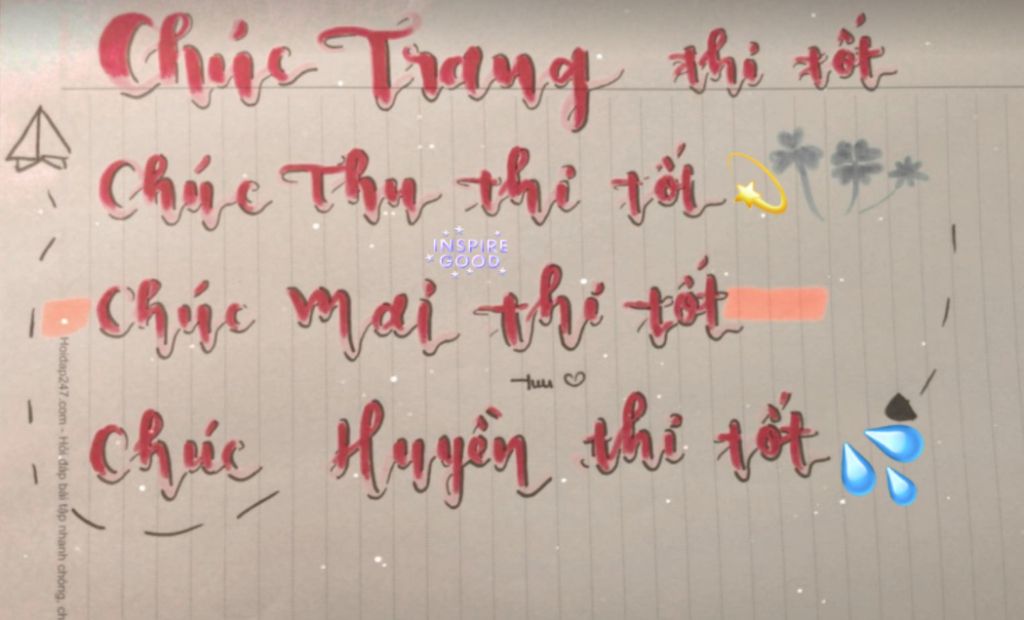 Chúc Trang thi tốt
Chúc Thu thi tốt
INSPIRE
GOOD
Chúc mai thi tốt
Chúc Huyền thi tốt
Hoidap247.com - Hỏi đáp bài tập nhanh chóng, ch